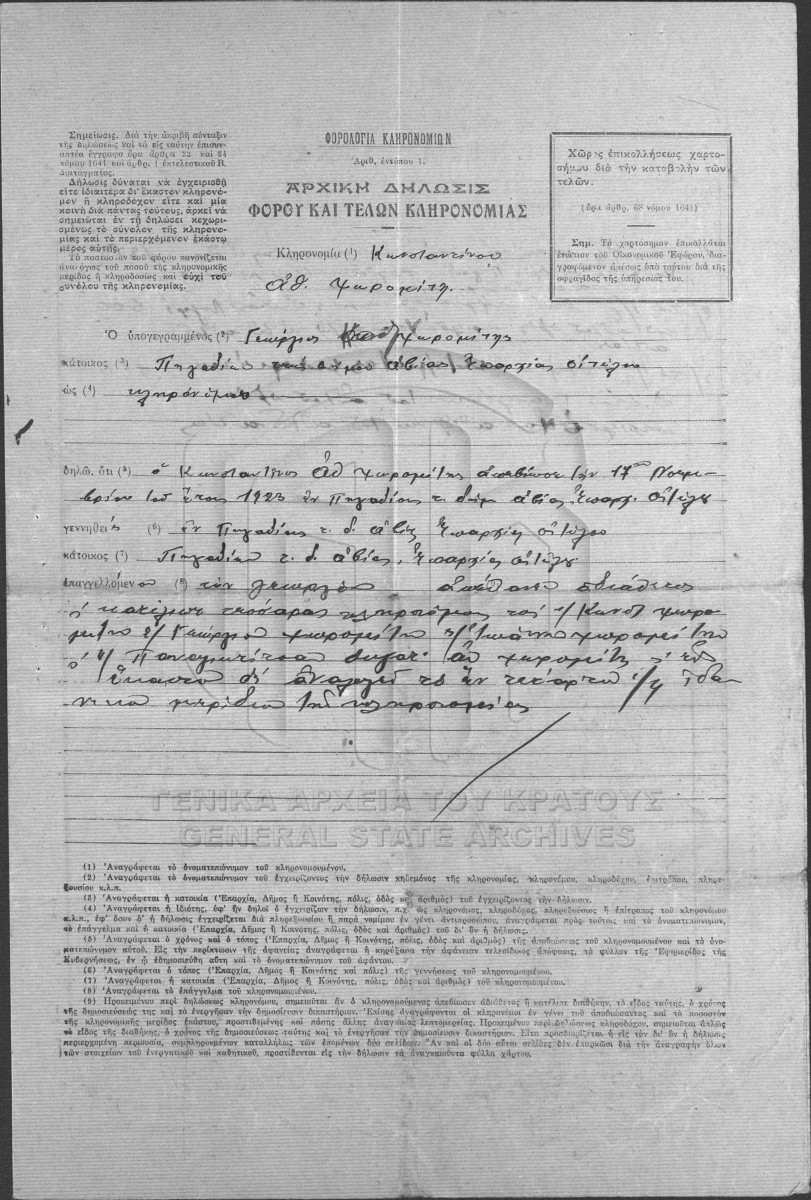 Σημείωσις. Διὰ τὴν ἀκριβῆ σύνταξιν
τῆς δηλώσεως καὶ τὰ εἰς ταύτην ἐπισυν-
απτέα ἔγγραφα ὅρα ἄρθρα 22 καὶ 24
νόμου 1641 καὶ ἄρθρ. 1 ἐκτελεστικοῦ Β.
Διατάγματος.
Δήλωσις δύναται νὰ ἐγχειρισθῇ
εἴτε ἰδιαιτέρα δι' ἕκαστον κληρονό-
μον ἢ κληροδόχον εἴτε καὶ μία
κοινὴ διὰ πάντας τούτους, ἀρκεῖ νὰ
σημειῶται ἐν τῇ δηλώσει κεχωρι-
σμένως τὸ σύνολον τῆς κληρονο-
μίας καὶ τὸ περιερχόμενον ἑκάστῳ
μέρος αὐτῆς.
Τὸ ποσοστὸν τοῦ φόρου κανονίζεται
ἀναλόγως τοῦ ποσοῦ τῆς κληρονομικῆς
μερίδος ἢ κληροδοσίας καὶ οὐχὶ τοῦ
συνόλου τῆς κληρονομίας.
ΦΟΡΟΛΟΓΙΑ ΚΛΗΡΟΝΟΜΙΩΝ
Ἀριθ. ἐντύπου 1.
ΑΡΧΙΚΗ ΔΗΛΩΣΙΣ
ΦΟΡΟΥ ΚΑΙ ΤΕΛΩΝ ΚΛΗΡΟΝΟΜΙΑΣ
Χῶρος ἐπικολλήσεως χαρτο-
σήμου διὰ τὴν καταβολὴν τῶν
τελῶν.
(ὅρα ἄρθρ. 68 νόμου 1641)
Σημ. Τὸ χαρτόσημον ἐπικολλᾶται
ἐνώπιον τοῦ Οἰκονομικοῦ Ἐφόρου, δια-
γραφόμενον ἀμέσως ὑπὸ τούτου διὰ τῆς
σφραγῖδος τῆς ὑπηρεσίας του.
Κληρονομία (1) Κωνσταντίνου
Ἀθ. Χωρομίτη.
Ὁ ὑπογεγραμμένος (2) Γεώργιος Χωρομίτης
κάτοικος (3) Πηγαδίων τοῦ δήμου Ἀβίας Ἐπαρχίας Οἰτύλου
ὡς (4) κληρονόμος
δηλῶ, ὅτι (5) ὁ Κωνσταντῖνος Ἀθ Χωρομίτης ἀπεβίωσε τὴν 17 Νοεμ-
βρίου τοῦ ἔτους 1923 ἐν Πηγαδίοις τ. δήμ Ἀβίας Ἐπαρχ. Οἰτύλου
γεννηθεὶς (6) ἐν Πηγαδίοις τ. δ. Ἀβίας Ἐπαρχίας Οἰτύλου
κάτοικος (7) Πηγαδίων τ. δ. Ἀβίας, Ἐπαρχίας Οἰτύλου
ἐπαγγελλόμενο (8) τὸν γεωργὸν ἀπέθανε ἀδιάθετος
κατέλιπε τέσσαρας κληρονόμους τοὺς 1/ Κωνστ Χωρο-
μίτην 2/ Γεώργιον Χωρομίτην 3/ Ἰωάννην Χωρομίτην
4/ Παναγιωτίτσα θυγατ. Ἀθ Χωρομίτη
ἕκαστον δὲ ἀναλογεῖ τὸ ἓν τέταρτον 1/4 ἰδα-
νικὸ μερίδιο τῆς κληρονομίας
ΓΕΝΙΚΑ ΑΡΧΕΙΑ ΤΟΥ ΚΡΑΤΟΥΣ
GENERAL STATE ARCHIVES
(1) Ἀναγράφεται τὸ ὀνοματεπώνυμον τοῦ κληρονομουμένου.
(2) Ἀναγράφεται τὸ ὀνοματεπώνυμον τοῦ ἐγχειρίζοντος τὴν δήλωσιν κηδεμόνος τῆς κληρονομίας, κληρονόμου, κληροδόχου, ἐπιτρόπου, πληρε-
ξουσίου κ.λ.π.
(3) Ἀναγράφεται ἡ κατοικία (Ἐπαρχία, Δῆμος ἢ Κοινότης, πόλις, ὁδὸς καὶ ἀριθμὸς) τοῦ ἐγχειρίζοντος τὴν δήλωσιν.
(4) Ἀναγράφεται ἡ ἰδιότης, ὑφ' ἣν δηλοῖ ὁ ἐγχειρίζων τὴν δήλωσιν, π.χ. ὡς κληρονόμος, κληροδόχος, πληρεξούσιος ἢ ἐπίτροπος τοῦ κληρονόμου
κ.λ.π., ἐφ' ὅσον δ' ἡ δήλωσις ἐγχειρίζεται διὰ πληρεξουσίου ἢ παρὰ νομίμου ἐν γένει ἀντιπροσώπου, ἀναγράφεται πρὸς τούτοις καὶ τὸ ὀνοματεπώνυμον,
τὸ ἐπάγγελμα καὶ ἡ κατοικία (Ἐπαρχία, Δῆμος ἢ Κοινότης, πόλις, ὁδὸς καὶ ἀριθμὸς) τοῦ δι' ὃν ἡ δήλωσις.
(5) Ἀναγράφεται ὁ χρόνος καὶ ὁ τόπος (Ἐπαρχία, Δῆμος ἢ Κοινότης, πόλις, ὁδὸς καὶ ἀριθμὸς) τῆς ἀποβιώσεως τοῦ κληρονομουμένου καὶ τὸ ὀνο-
ματεπώνυμον αὐτοῦ. Εἰς τὴν περίπτωσιν τῆς ἀφανείας ἀναγράφεται ἡ κηρύξασα τὴν ἀφάνειαν τελεσίδικος ἀπόφασις, τὸ φύλλον τῆς Ἐφημερίδος τῆς
Κυβερνήσεως, ἐν ᾧ ἐδημοσιεύθη αὕτη καὶ τὸ ὀνοματεπώνυμον τοῦ ἀφάντου.
(6) Ἀναγράφεται ὁ τόπος (Ἐπαρχία, Δῆμος ἢ Κοινότης καὶ πόλις) τῆς γεννήσεως τοῦ κληρονομουμένου.
(7) Ἀναγράφεται ἡ κατοικία (Ἐπαρχία, Δῆμος ἢ Κοινότης, πόλις, ὁδὸς καὶ ἀριθμὸς) τοῦ κληρονομουμένου.
(8) Ἀναγράφεται τὸ ἐπάγγελμα τοῦ κληρονομουμένου.
(9) Προκειμένου περὶ δηλώσεως κληρονόμου, σημειοῦται ἂν ὁ κληρονομούμενος ἀπεβίωσεν ἀδιάθετος ἢ κατέλιπε διαθήκην, τὸ εἶδος ταύτης, ὁ χρόνος
τῆς δημοσιεύσεώς της καὶ τὸ ἐνεργῆσαν τὴν δημοσίευσιν δικαστήριον. Ἐπίσης ἀναγράφονται οἱ κληρονόμοι ἐν γένει τοῦ ἀποβιώσαντος καὶ τὸ ποσοστὸν
τῆς κληρονομικῆς μερίδος ἑκάστου, προστιθεμένης καὶ πάσης ἄλλης ἀναγκαίας λεπτομερείας. Προκειμένου περὶ δηλώσεως κληροδόχου, σημειοῦται ἁπλῶς
τὸ εἶδος τῆς διαθήκης, ὁ χρόνος τῆς δημοσιεύσεως ταύτης καὶ τὸ ἐνεργῆσαν τὴν δημοσίευσιν δικαστήριον. Εἶτα προσδιορίζεται ἡ εἰς τὸν δι' ὃν ἡ δήλωσις
περιερχομένη περιουσία, συμπληρουμένων καταλλήλως τῶν ἑπομένων δύο σελίδων. Ἂν καὶ αἱ δύο αὗται σελίδες δὲν ἐπαρκῶσι διὰ τὴν ἀναγραφὴν ὅλων
τῶν στοιχείων τοῦ ἐνεργητικοῦ καὶ παθητικοῦ, προστίθενται εἰς τὴν δήλωσιν τὰ ἀναγκαιοῦντα φύλλα χάρτου.